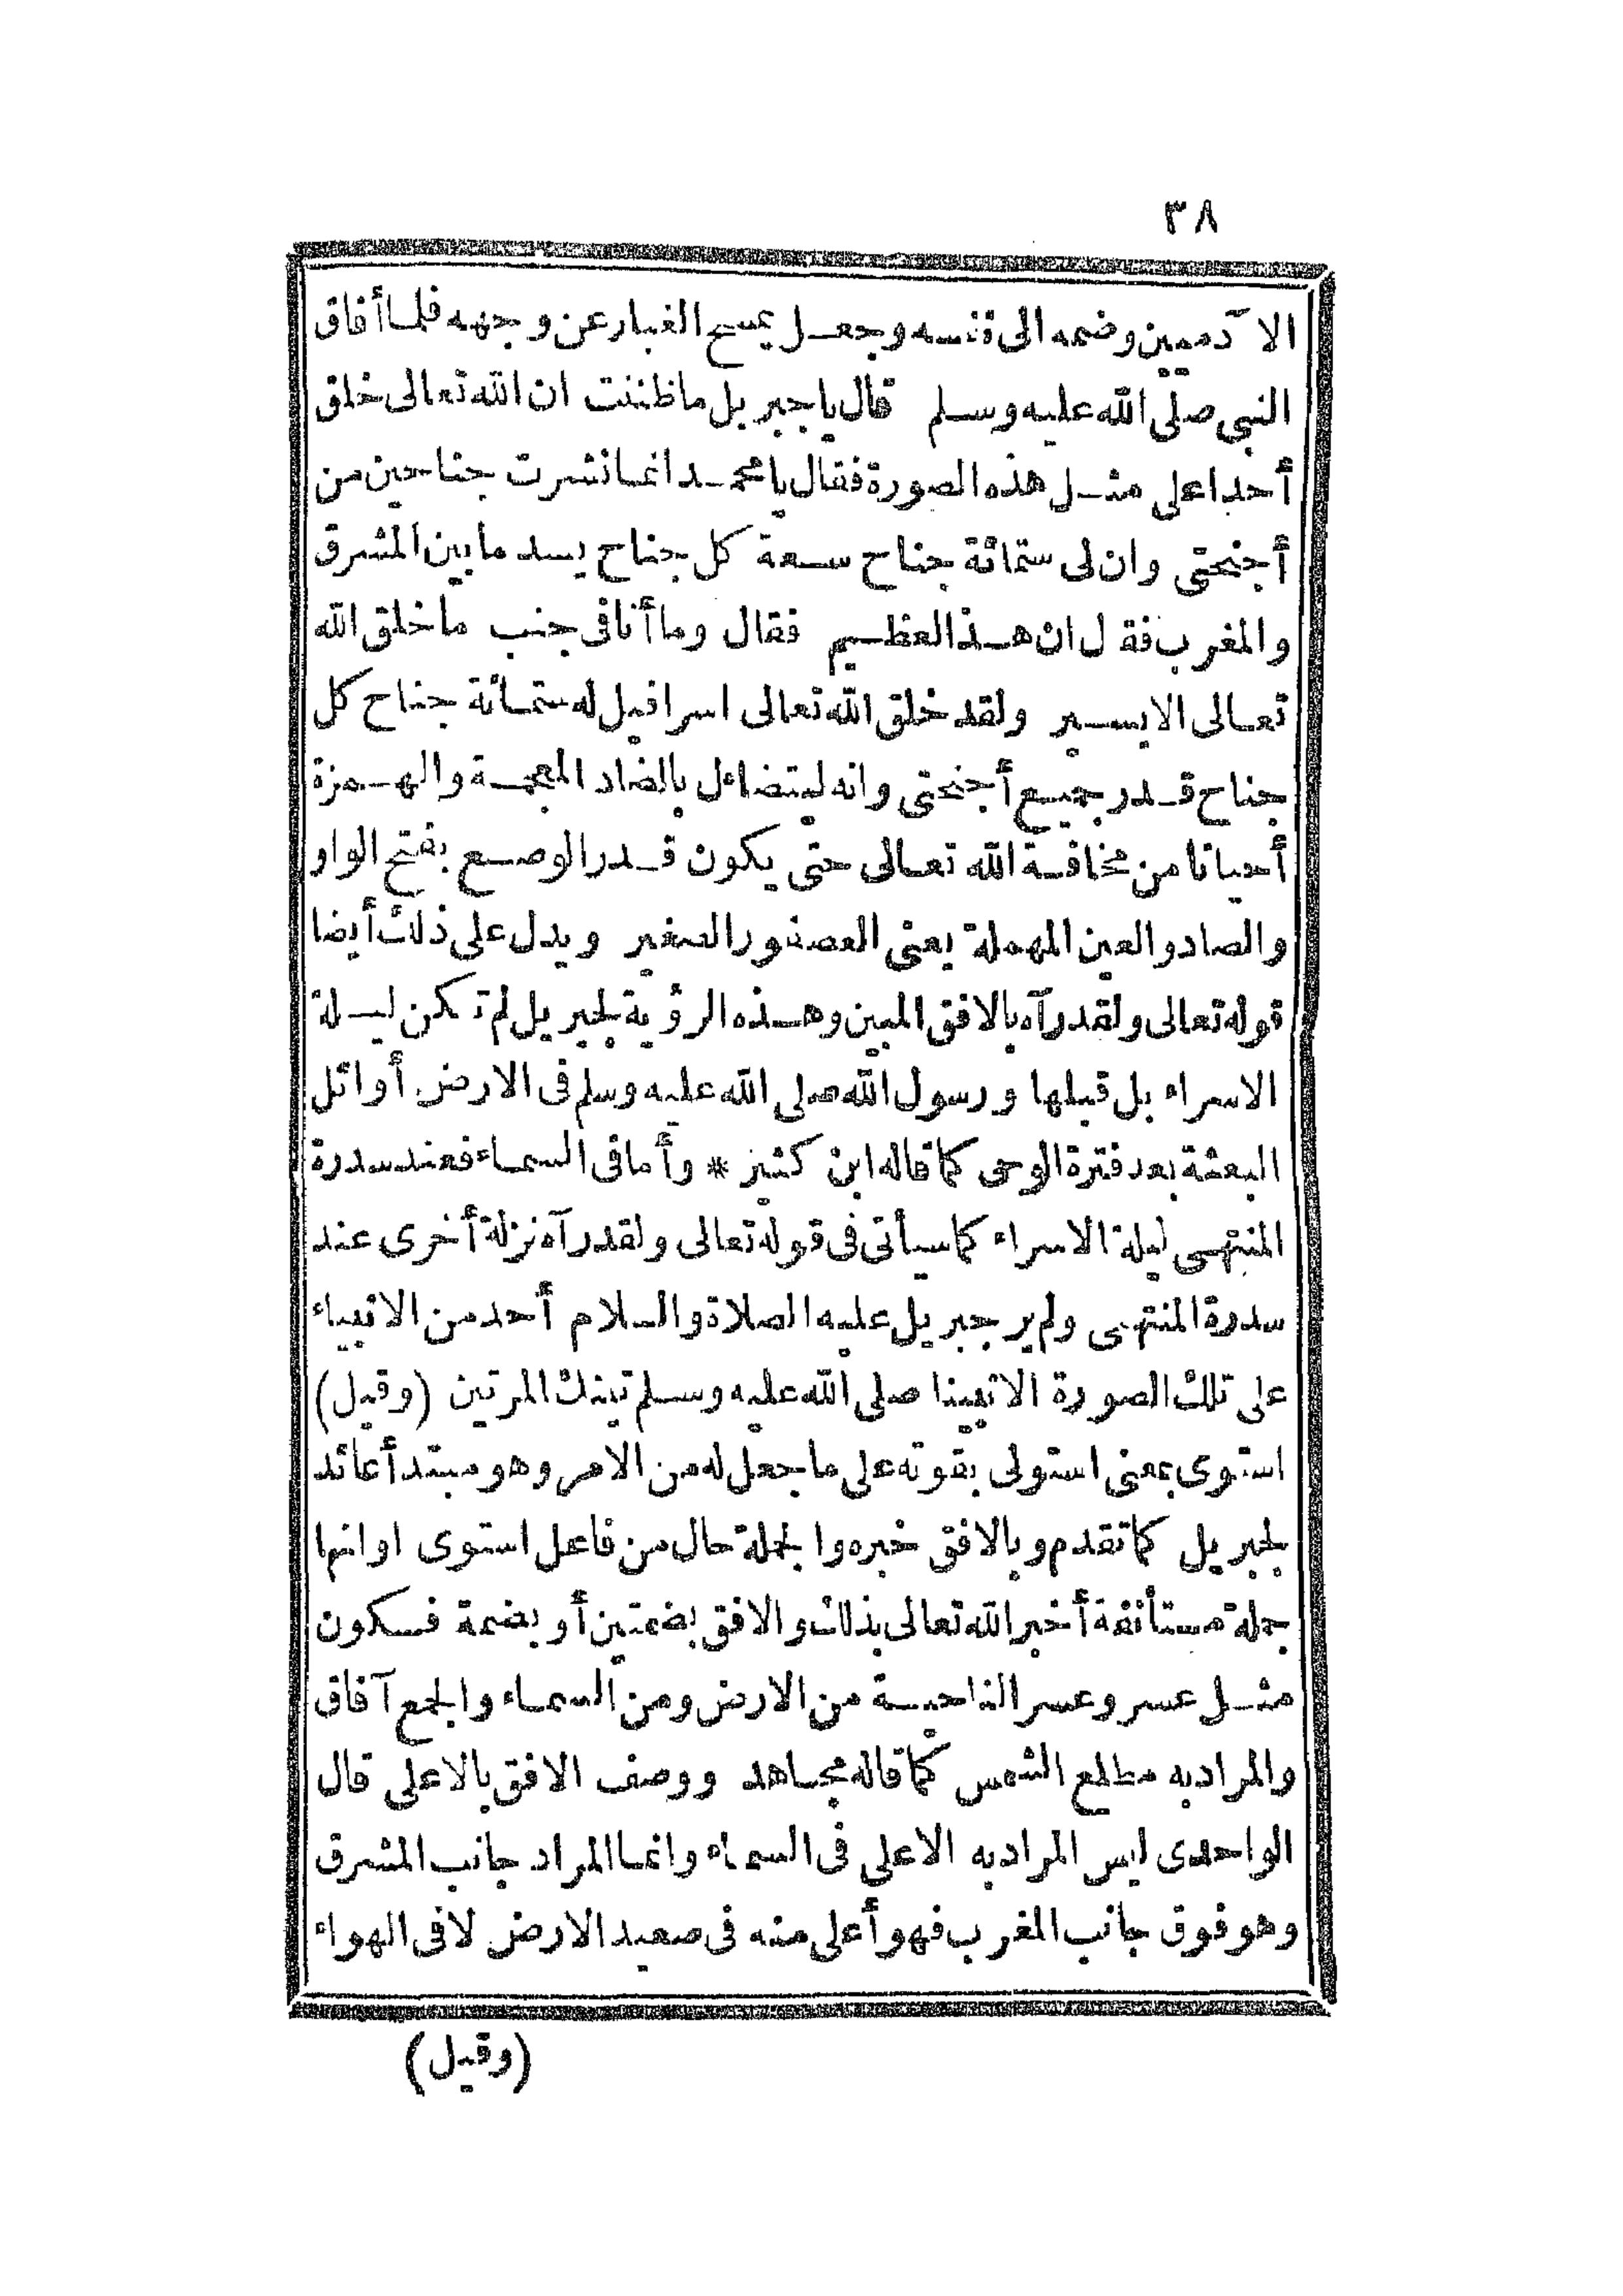 ٣٨
الآدميين وضمه الى نفسه وجعل يمسح الغبار عن وجهه فلما أفاق
النبي صلى الله عليه وسلم قال يا جبريل ما ظننت ان الله تعالى خلق
أحدا على مثل هذه الصورة فقال يا محمد انما نشرت جناحين من
أجنحتى وان لى ستمائة جناح سعة كل جناح يسد ما بين المشرق
والمغرب فقل ان هذا لعظيم فقال وما أنا فى جنب ما خلق الله
تعالى الا يسير ولقد خلق الله تعالى اسرافيل له ستمائة جناح كل
جناح قدر جميع أجنحتى وانه ليتضاءل بالضاد المعجمة والهمزة
أحيانا من مخافة الله تعالى حتى يكون قدر الوصع بفتح الواو
والصاد والعين المهملة يعنى العصفور الصغير ويدل على ذلك أيضا
قوله تعالى ولقد رآه بالافق المبين وهذه الرؤية لجبريل لم تكن ليلة
الاسراء بل قبلها ورسول الله صلى الله عليه وسلم فى الارض أوائل
البعثة بعد فترة الوحى كما قاله ابن كثير * وأما فى السماء فعند سدرة
المنتهى ليلة الاسراء كما سيأتى فى قوله تعالى ولقد رآه نزلة أخرى عند
سدرة المنتهى ولم ير جبريل عليه الصلاة والسلام أحد من الانبياء
على تلك الصورة الا نبينا صلى الله عليه وسلم تينك المرتين (وقيل)
استوى بمعنى استولى بقوته على ما جعل له من الامر وهو مبتدأ عائد
لجبريل كما تقدم وبالافق خبره والجملة حال من فاعل استوى او انها
جملة مستأنفة أخبر الله تعالى بذلك والافق بضمتين أو بضمة فسكون
مثل عسر وعسر الناحية من الارض ومن السماء والجمع آفاق
والمراد به مطلع الشمس كما قاله مجاهد ووصف الافق بالاعلى قال
الواحدى ليس المراد به الاعلى فى السماء وانما المراد جانب المشرق
وهو فوق جانب المغرب فهو أعلى منه فى صعيد الارض لا فى الهواء
(وقيل)